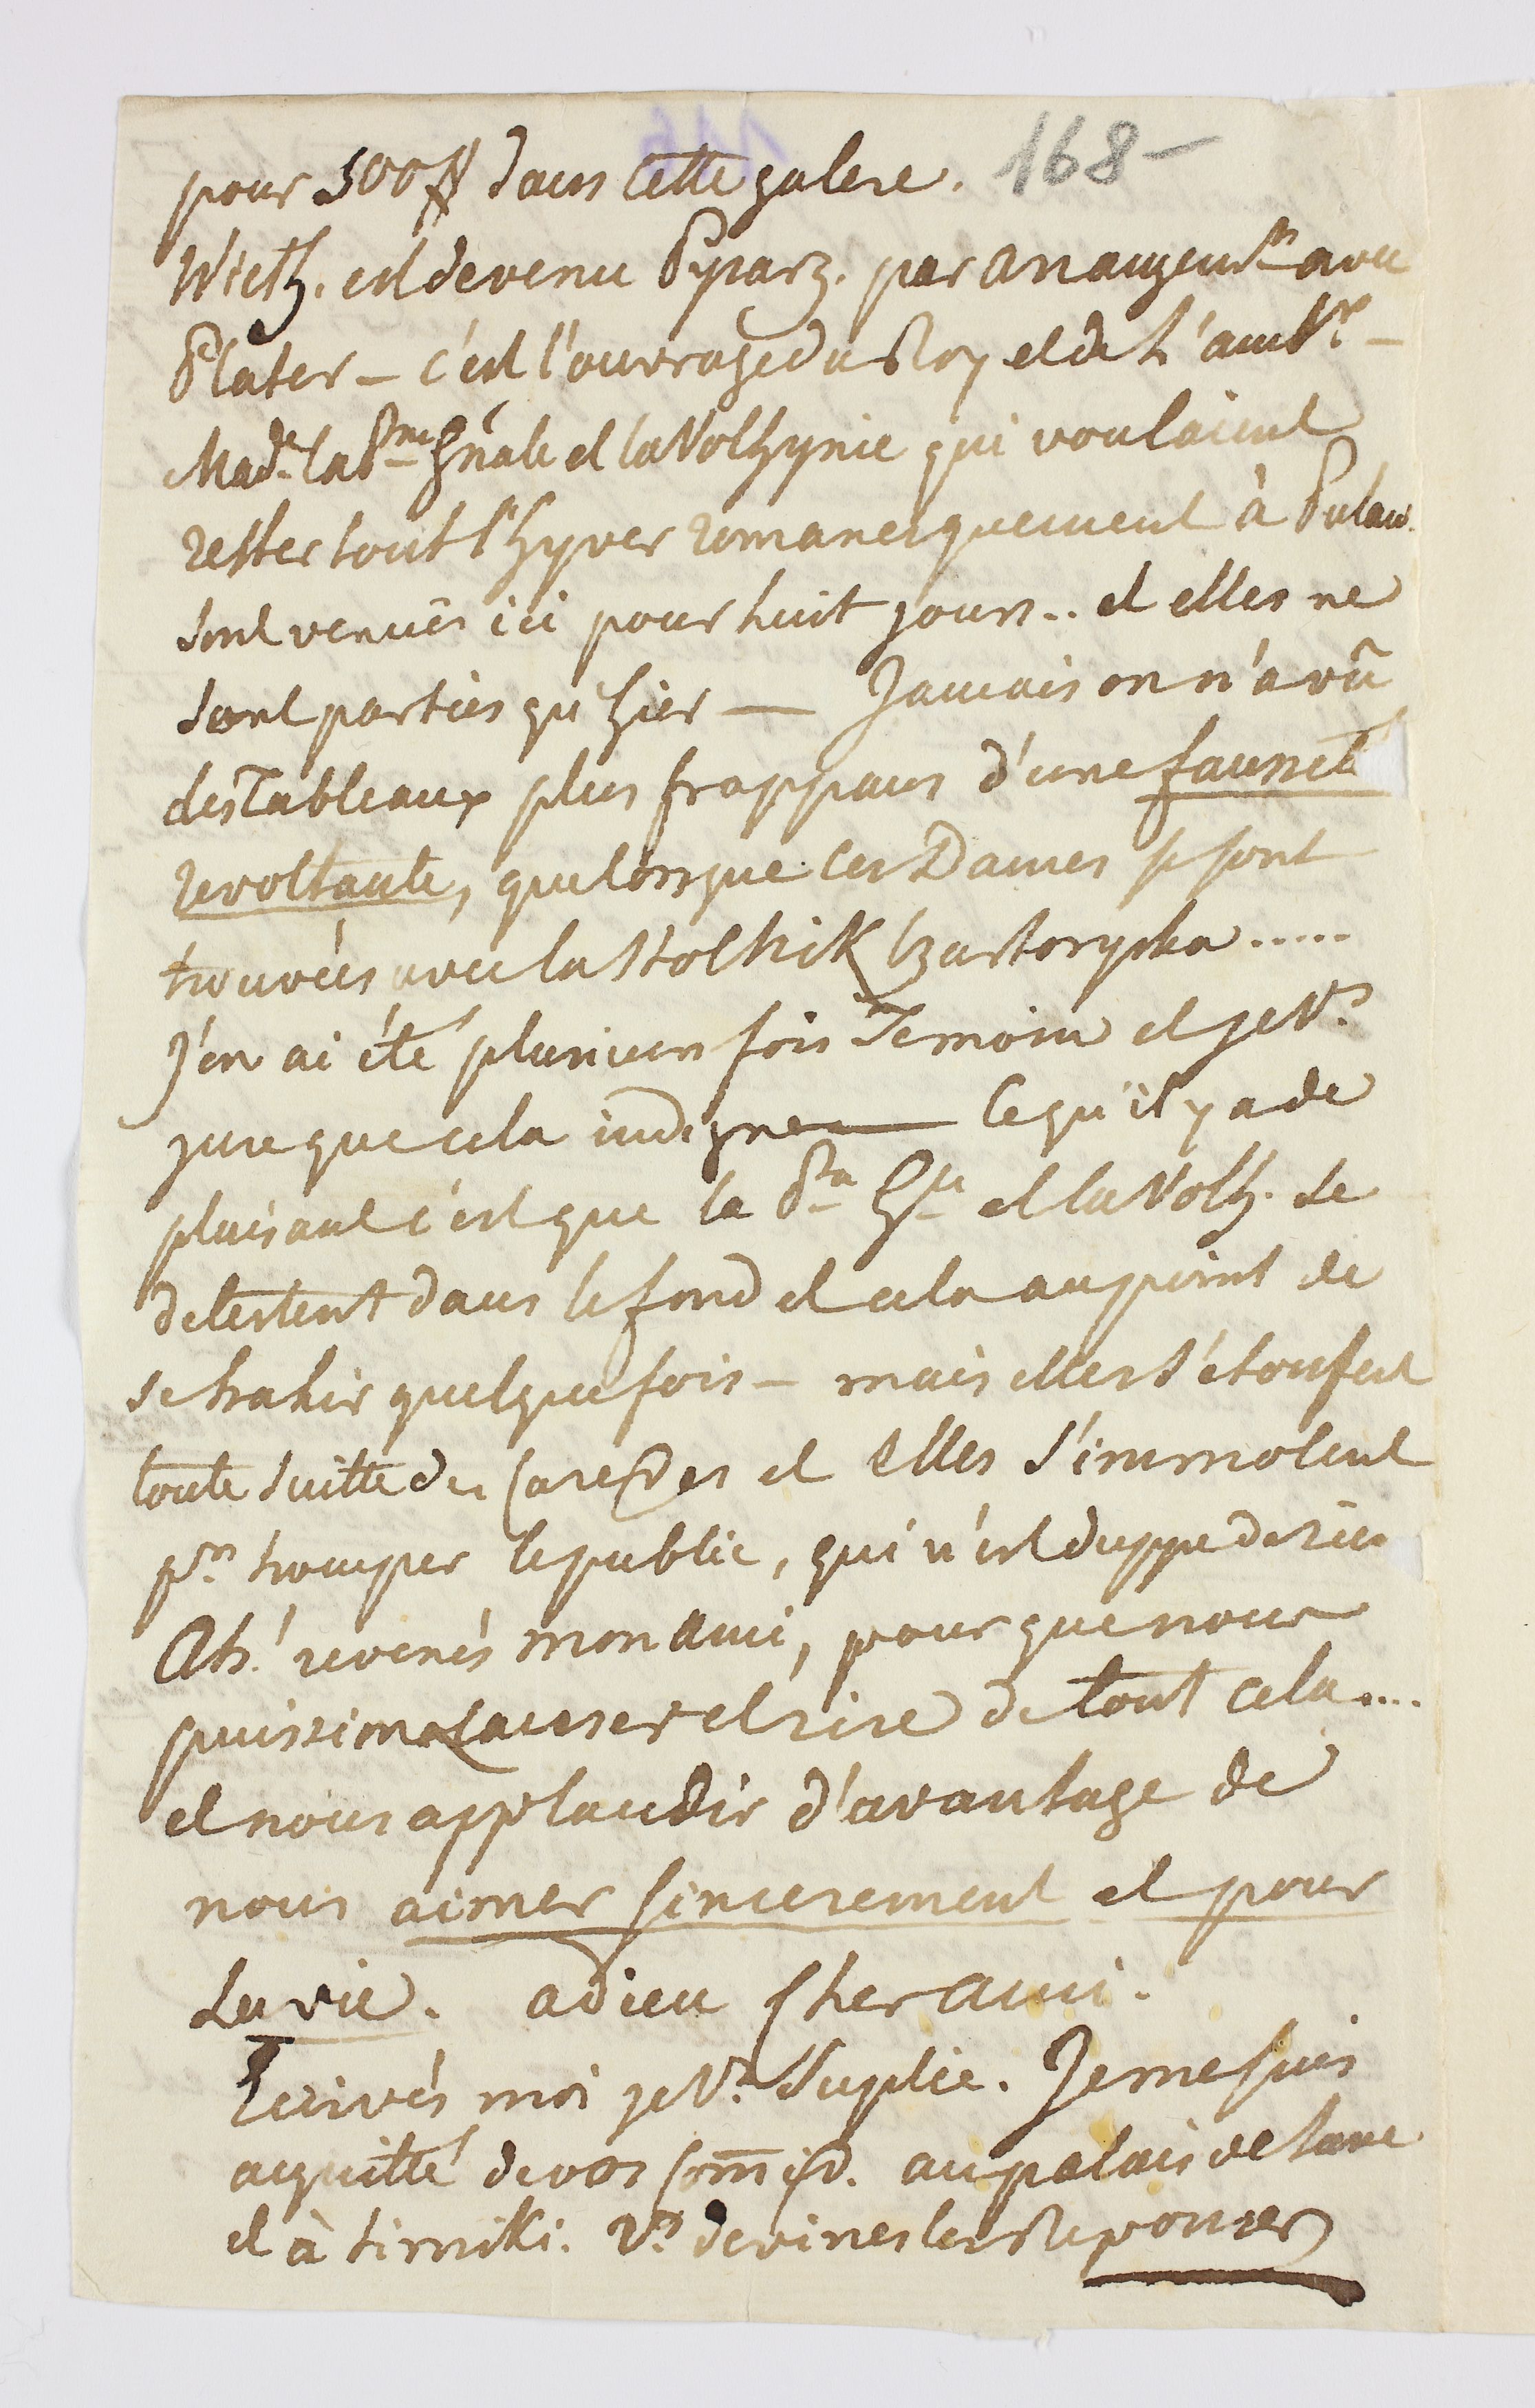 pour 500 # dans cette galere. 168-
Wielh. est devenu Pyrarz. par arrangemt avec
Plater – c'est l'ouvrage du Roy et de L'ambr –
Made la Pme Gnale et la Volhynie qui voulaient
rester tout l'hyver romanesquement à Pulaw.
sont venuës ici pour huit jours.. et elles ne
sont parties qu'hier — Jamais on n'a vû
des Tableaux plus frappans d'une fausseté
revoltante, que lorsque ces Dames se sont
trouvées avec la Stolnik Czartoryska.....
J'en ai été plusieurs fois Temoin et je Vs
jure que cela indigne — Ce qu'il y a de
plaisant c'est que la Pce Gle et la Volh. se
detestent dans le fond et cela au point de
se trahir quelque fois – mais elles s'étoufent
toute suitte de Caresses et elles s'immolent
pr tromper le public, qui n'est duppe de rien
Ah! revenés mon ami, pour que nous
puissions causer et rire de tout cela....
et nous applaudir d'avantage de
nous aimer sincerement et pour
La vie. adieu Cher ami.
Ecrivés moi je Vs Suplie. Je me suis
acquitté de vos Com̄iss. au palais de tane
et à Limiki. Vs devines les Reponses